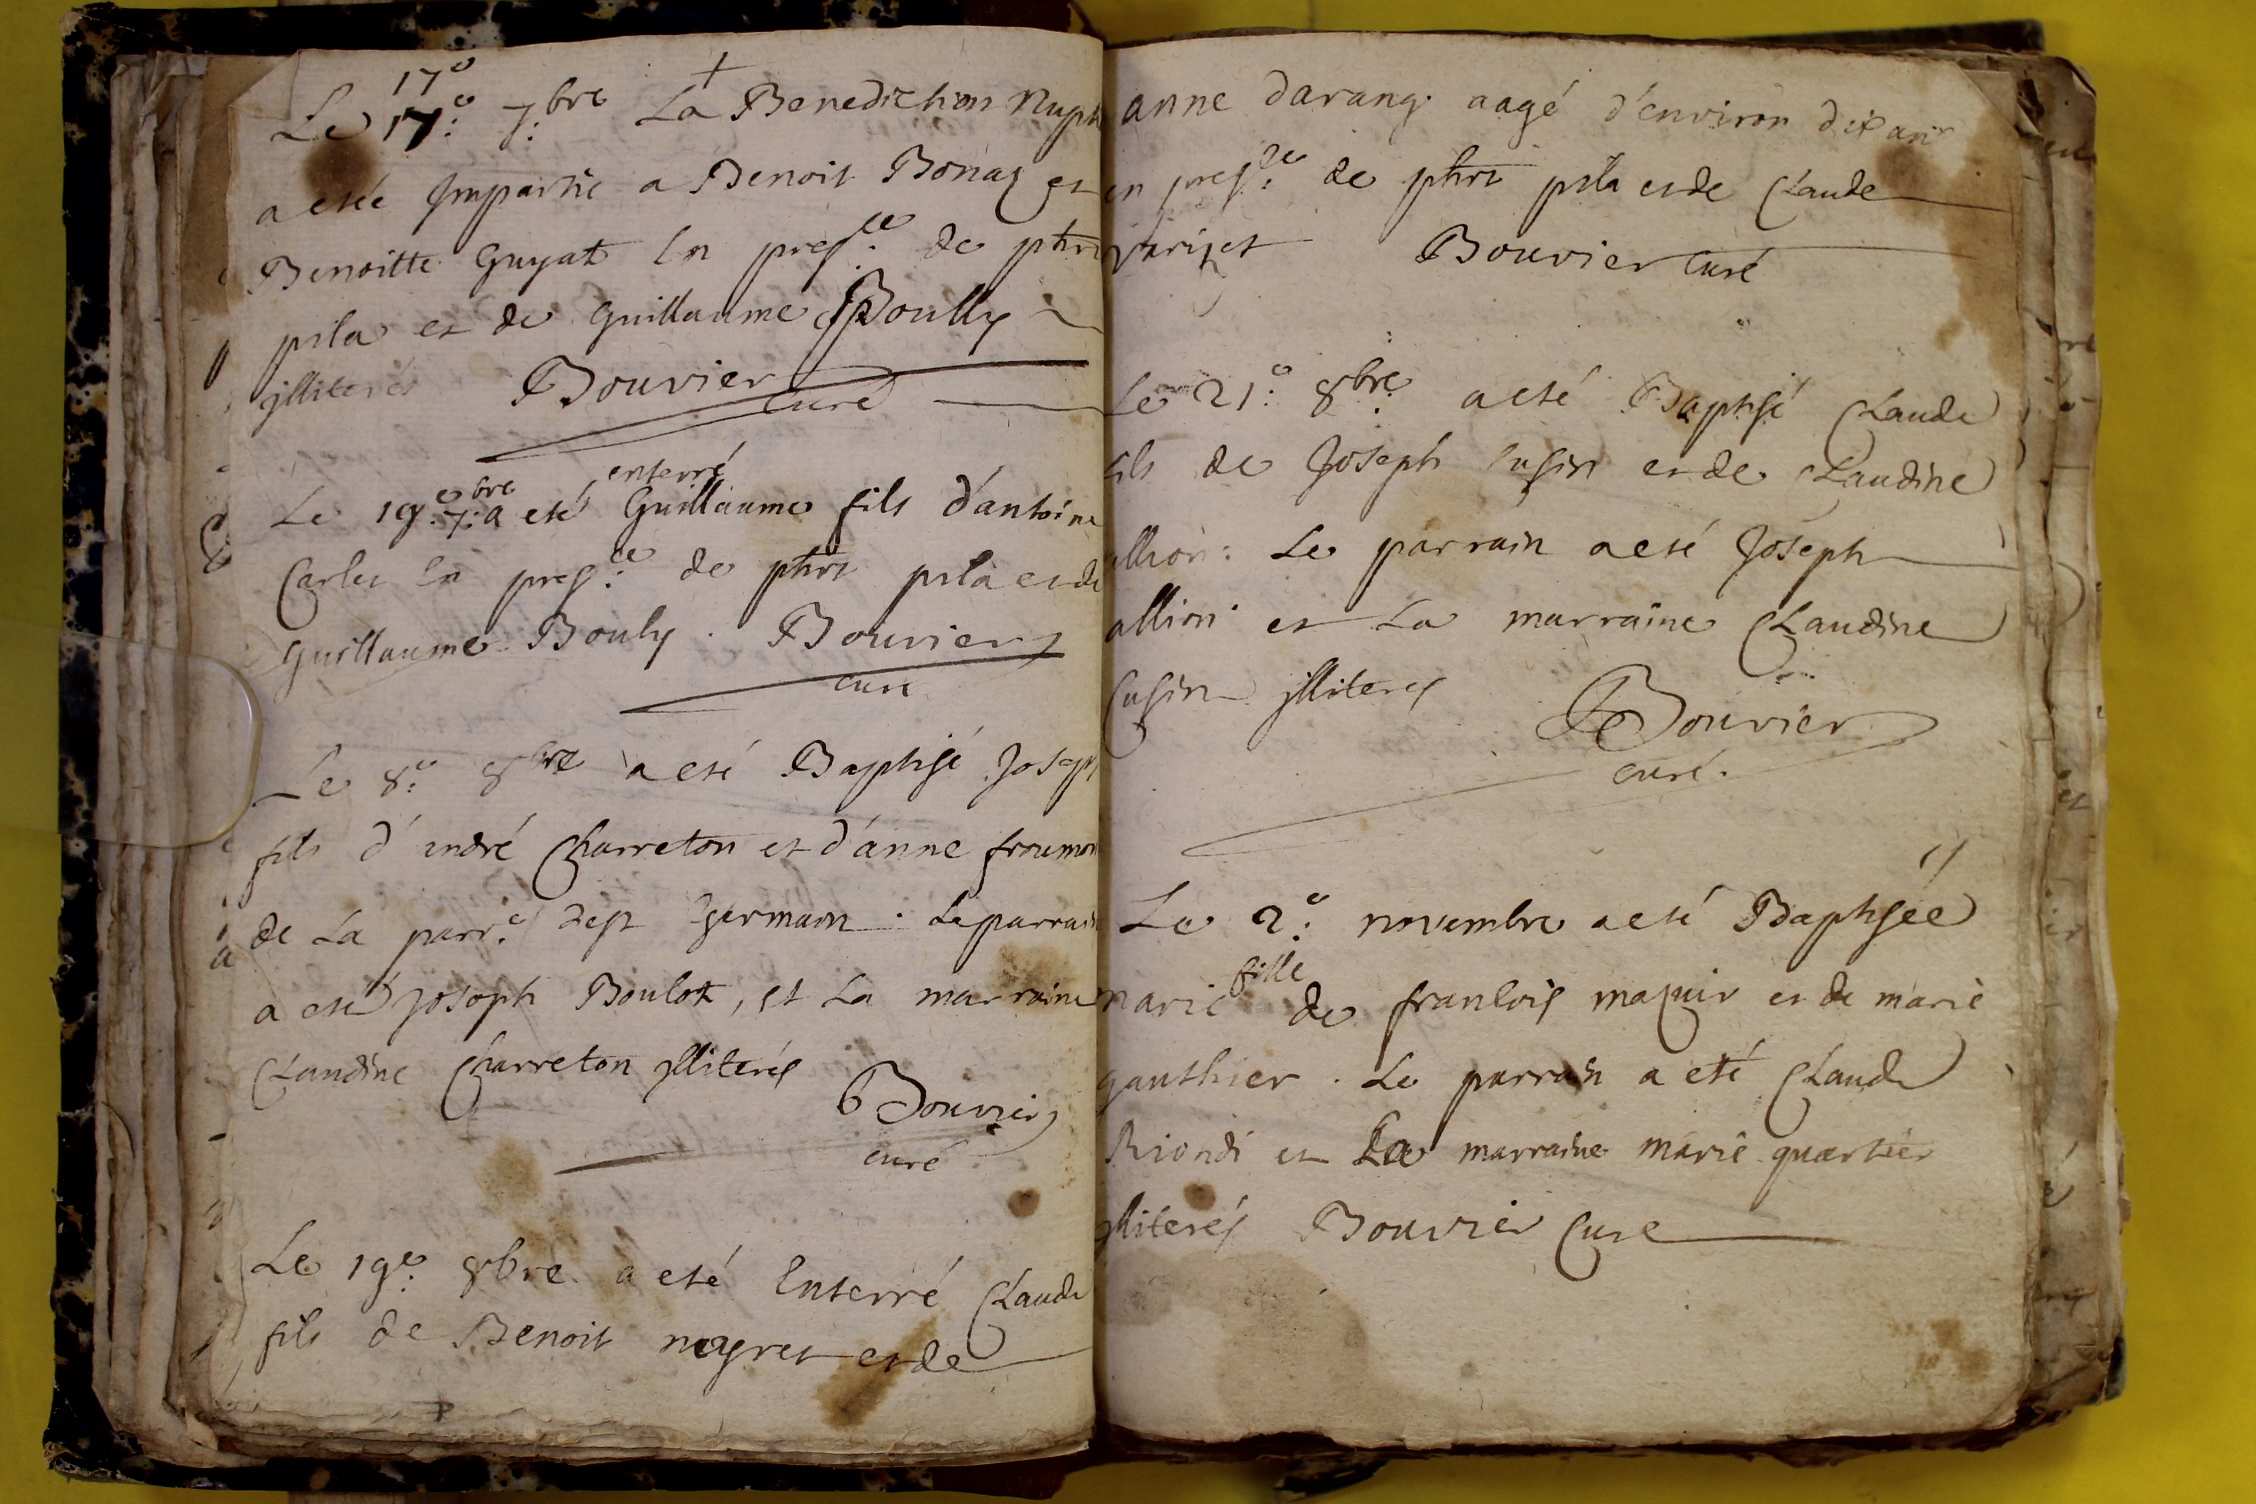 17e
Le 17e: 7:bre La Benediction Nupt
a eteé Impartie a Benoit Bonaz et
Benoitte Guyat En pres:ce de phrt
pila et de Guillaume Boully
illiterés Bouvier
curé
enterré
Le 19e: 7:bre a eté Guillaume fils d'antoine
Carlet En pres:ce de phrt pila et de
Guillaume Bouly . Bouvier
curé
Le 8:e 8bre a eté Baptisé Joseph
fils d'andré Charreton et d'anne froumon
de La parr:e de st Germain . Le parrain
a eté Joseph Boulot, et La marraine
Claudine Charreton illiterés
Bouvier
curé
Le 19e: 8bre a eté Enterré Claude
fils de Benoit neyret et de
anne darang. aagé d'environ dix ans
en pres:ce de phrt pila et de Claude
Bouvier curé
Le 21:e 8bre a eté Baptisé Claude
fils de Joseph Cusin et de Claudine
allion: Le parrain a eté Joseph
allion et La marraine Claudine
Cusin illiterés Bouvier
curé.
Le 2:e novembre a eté Baptisée
fille
marie de francois majuir et de marie
gauthier . Le parrain a eté Claude
Riondi et La marraine marie quartier
illiterés Bouvier Curé